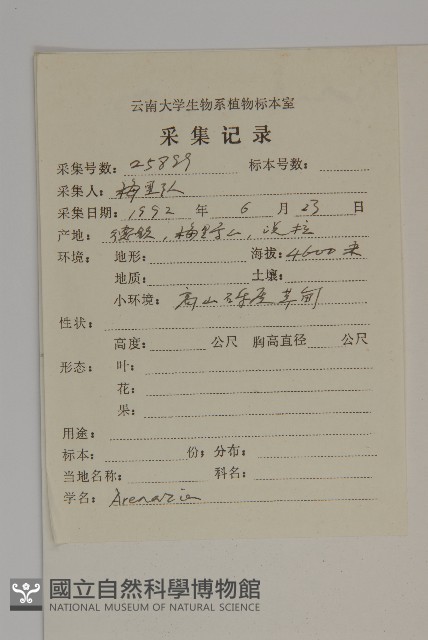 云南大学生物系植物标本室
采集记录
采集号数：25899 标本号数：
采集人：梅里队
采集日期：1992 年 6 月 23 日
产地：德钦，梅里雪山，说拉
环境：地形： 海拔：4600米
地质： 土壤：
小环境：高山砾石草甸
性状：
高度： 公尺 胸高直径 公尺
形态：叶：
花：
果：
用途：
标本： 份；分布：
当地名称： 科名：
学名：Arenaria
國立自然科學博物館
NATIONAL MUSEUM OF NATURAL SCIENCE